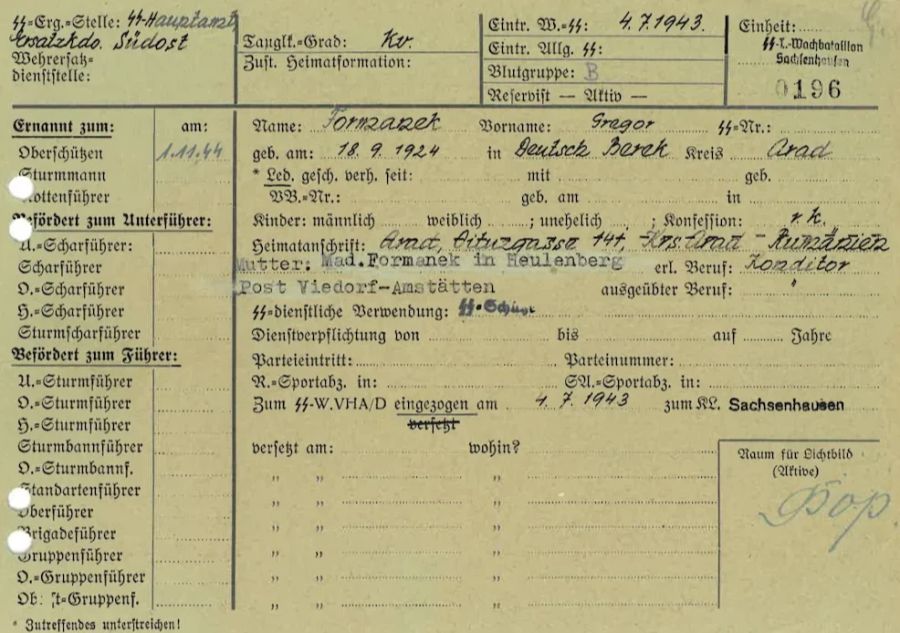 ᛋᛋ-Erg.-Stelle: ᛋᛋ-Hauptamt
Ersatzkdo. Südost
Wehrersatz=
dienststelle:
Tauglk.-Grad: Kv.
Zust. Heimatformation:
Eintr. W.-ᛋᛋ: 4.7.1943.
Eintr. Allg. ᛋᛋ:
Blutgruppe: B
Reservist — Aktiv —
Einheit:
ᛋᛋ-T.-Wachbataillon
Sachsenhausen
0196
Ernannt zum: am:
Oberschützen 1.11.44
Sturmmann
Rottenführer
Befördert zum Unterführer:
U.=Scharführer:
Scharführer
O.=Scharführer
H.=Scharführer
Sturmscharführer
Befördert zum Führer:
U.=Sturmführer
O.=Sturmführer
H.=Sturmführer
Sturmbannführer
O.=Sturmbannf.
Standartenführer
Oberführer
Brigadeführer
Gruppenführer
O.=Gruppenführer
Ob: t=Gruppenf.
* Zutreffendes unterstreichen!
Name: Formanek Vorname: Gregor ᛋᛋ=Nr.:
geb. am: 18.9.1924 in Deutsch Berek Kreis Arad
* Led. gesch. verh. seit: mit geb.
VB.=Nr.: geb. am in
Kinder: männlich weiblich ; unehelich ; Konfession: r.k.
Heimatanschrift: Arad, 141, Krs. Arad - Rumänien
Mutter: Mad.Formanek in Heulenberg erl. Beruf: Konditor
Post Viedorf-Amstätten ausgeübter Beruf: "
ᛋᛋ=dienstliche Verwendung: ᛋᛋ-Schütze
Dienstverpflichtung von bis auf Jahre
Parteieintritt: Parteinummer:
R.=Sportabz. in: SA.=Sportabz. in:
Zum ᛋᛋ=W.VHA/D eingezogen am 4.7.1943 zum KL. Sachsenhausen
versetzt
versetzt am: wohin?
" " "
" " "
" " "
" " "
" " "
" " "
" " "
Raum für Lichtbild
(Aktive)